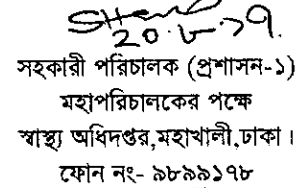 20.৮.১৭.
সহকারী পরিচালক (প্রশাসন-১)
মহাপরিচালকের পক্ষে
স্বাস্থ্য অধিদপ্তর,মহাখালী,ঢাকা।
ফোন নং- ৯৮৯৯১৭৮